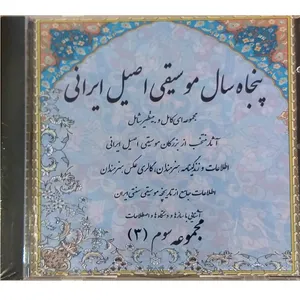 پنجاه سال موسیقی اصیل ایرانی
مجموعه‌ای کامل و بی‌نظیر شامل
آثار منتخب از بزرگان موسیقی اصیل ایرانی
اطلاعات و زندگینامه هنرمندان، گالری عکس هنرمندان
اطلاعات جامع از تاریخچه موسیقی سنتی ایران
آشنایی با سازها و دستگاه‌ها و اصطلاحات
مجموعه سوم (۳)